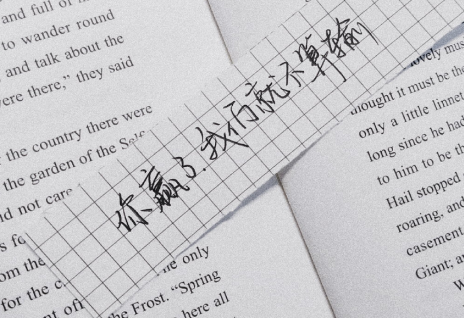 and full of
to wander round
and talk about the
ere there,” they said
the country there were
the garden of the
not care
om the
for the
only
the Frost. “Spring
here all
你赢了,我们就不算输
lovely
thought it must be the
only a little linnet
long since he had
to him to be
Hail stopped
roaring, and
casement
Giant;